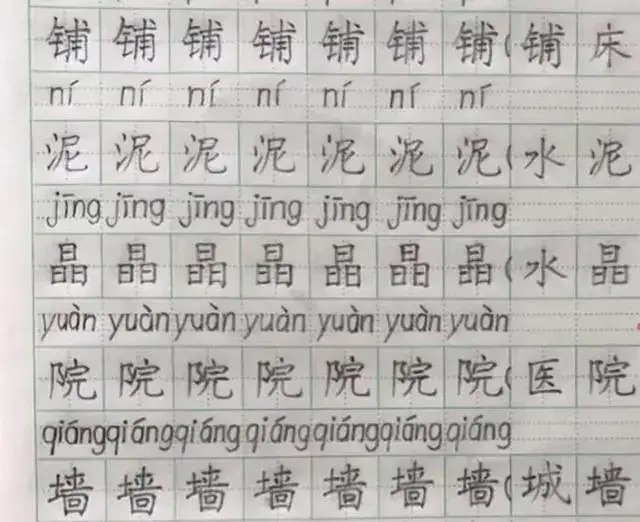 铺 铺 铺 铺 铺 铺 铺(铺 床
ní ní ní ní ní ní ní
泥 泥 泥 泥 泥 泥 泥(水 泥
jīng jīng jīng jīng jīng jīng jīng
晶 晶 晶 晶 晶 晶 晶(水 晶
yuàn yuàn yuàn yuàn yuàn yuàn yuàn
院 院 院 院 院 院 院(医 院
qiáng qiáng qiáng qiáng qiáng qiáng qiáng
墙 墙 墙 墙 墙 墙 墙(城 墙